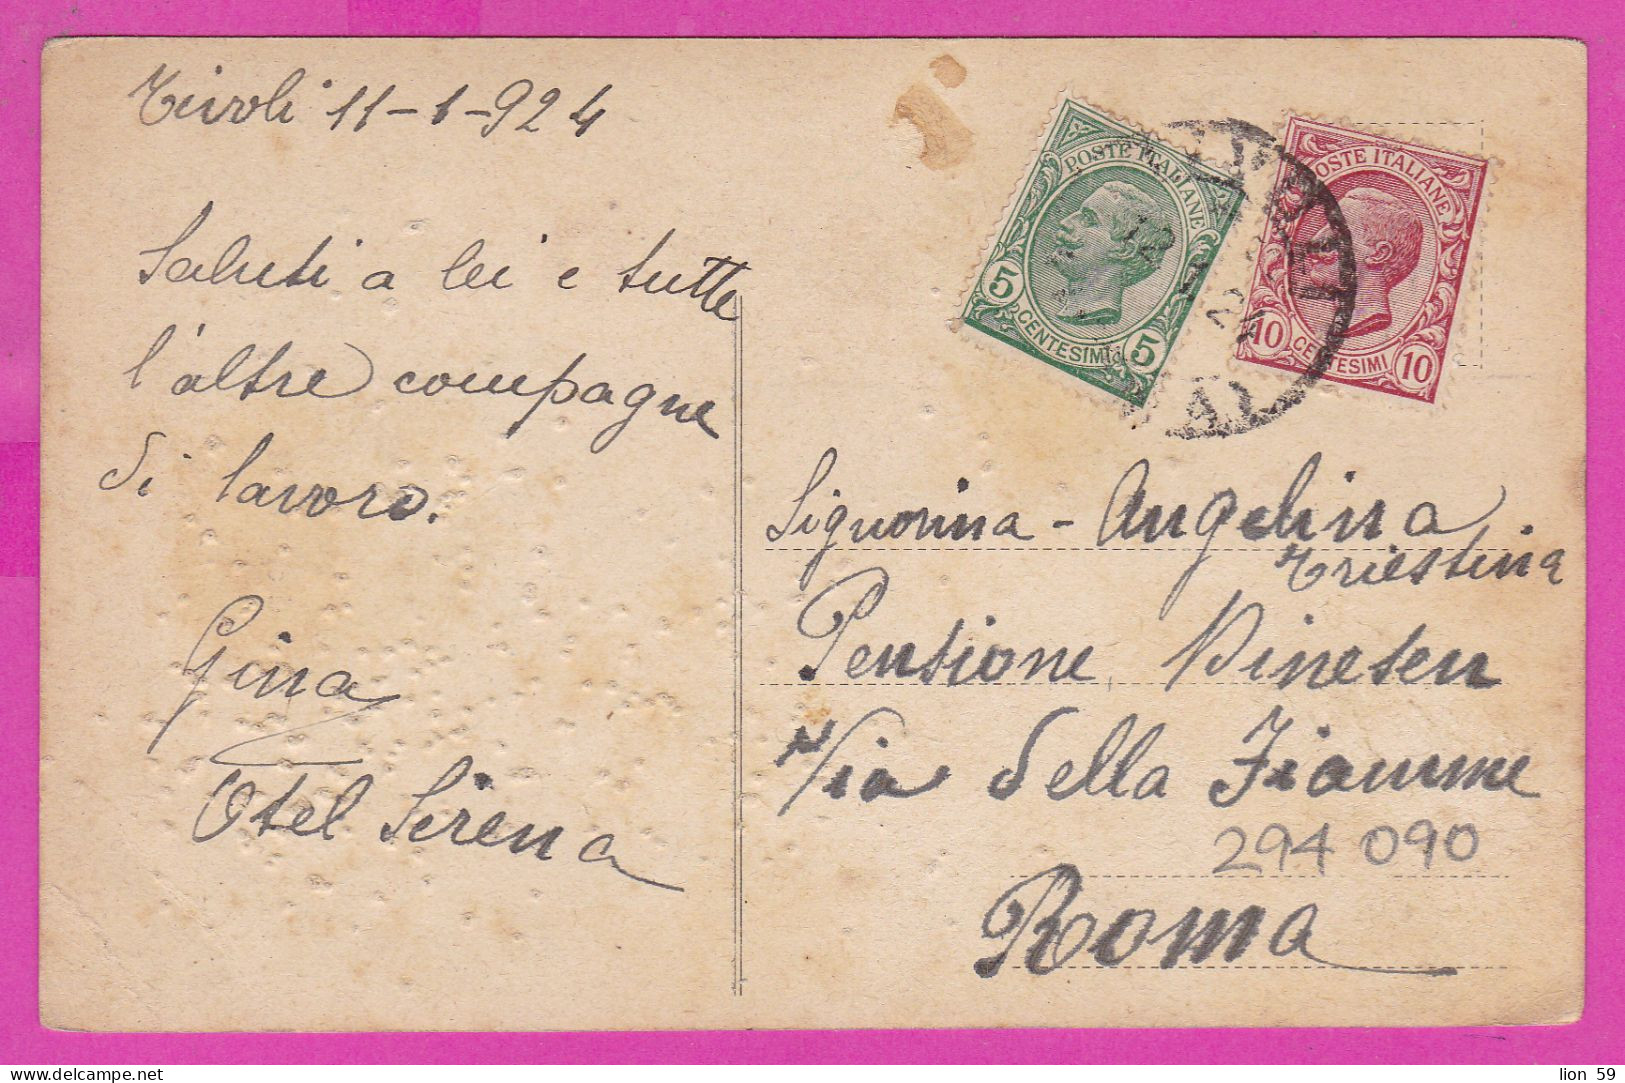 Tivoli 11-1-924
Saluti a lei e tutte
l'altre compagne
di lavoro.
Gina
Otel Sirena
POSTE ITALIANE
5 CENTESIMI 5
POSTE ITALIANE
10 CENTESIMI 10
12
1
24
Signorina - Angelina
Triestina
Pensione
Via della Fiamme
294 090
Roma
lion 59